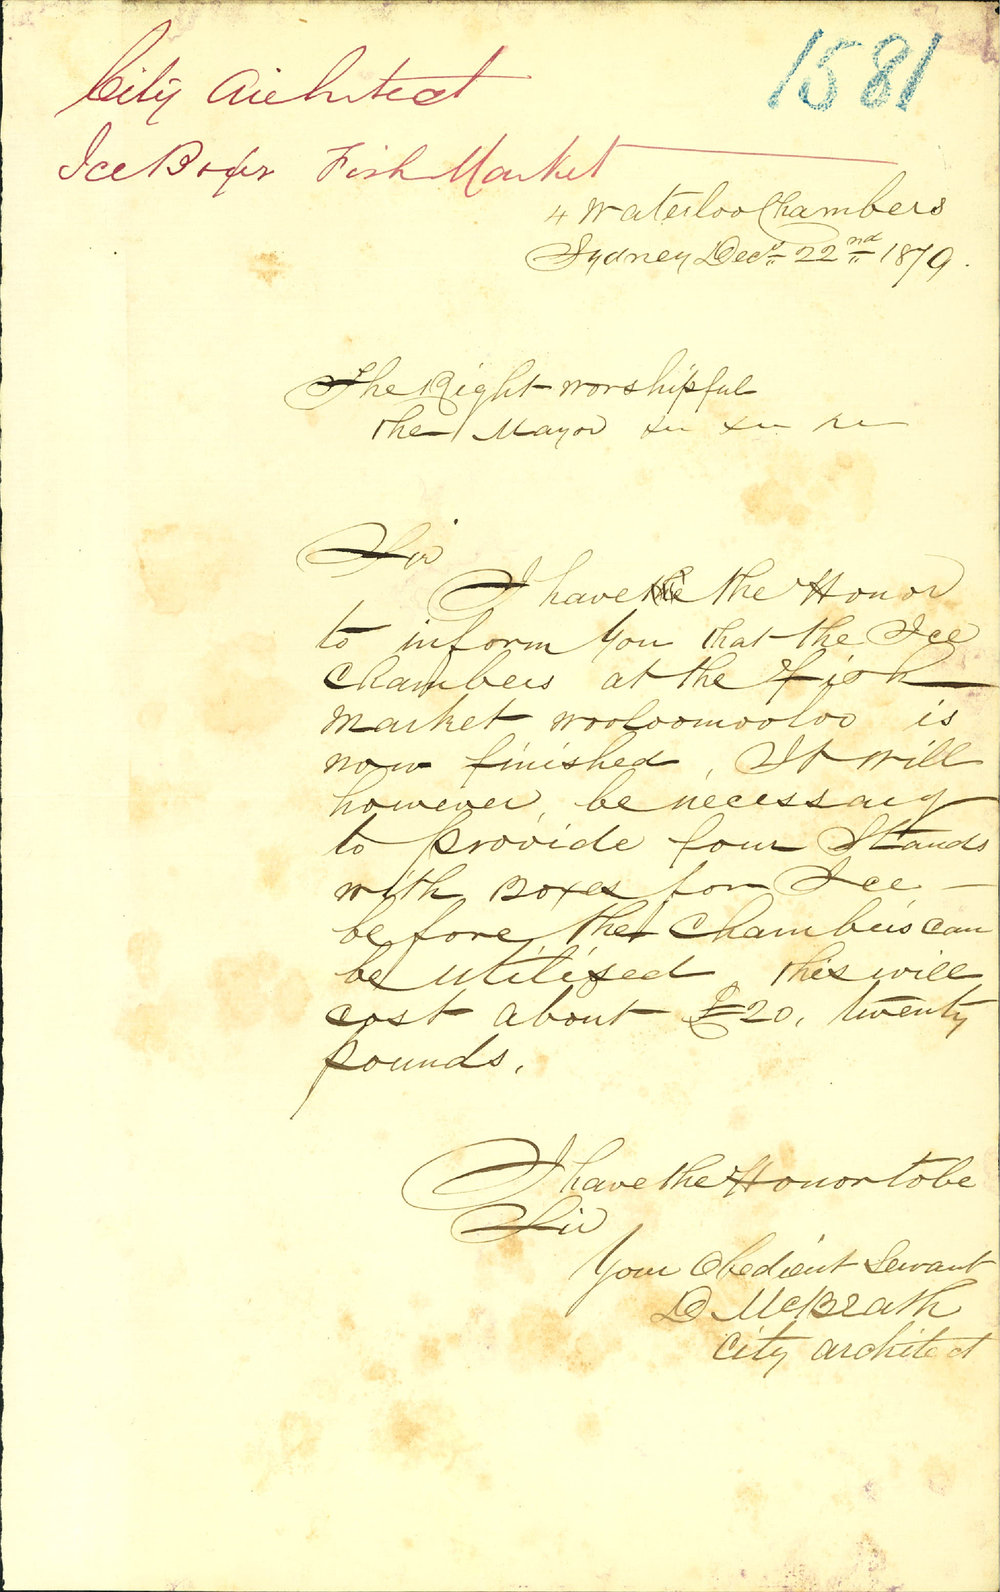 1581
City Architect
Ice Boxes Fish Market
4 Waterloo Chambers
Sydney Decr 22nd 1879.
The Right worshipful
the Mayor &c &c &c
Sir
I have the the Honor
to inform you that the Ice
Chambers at the Fish
market wooloomooloo is
now finished, It will
however, be necessary
to provide four Stands
with Boxes for Ice —
before the Chambers can
be utilized this will
cost about £20, twenty
pounds.
I have the Honor to be
Sir
Your Obedient Servant
D McBeath
City architect